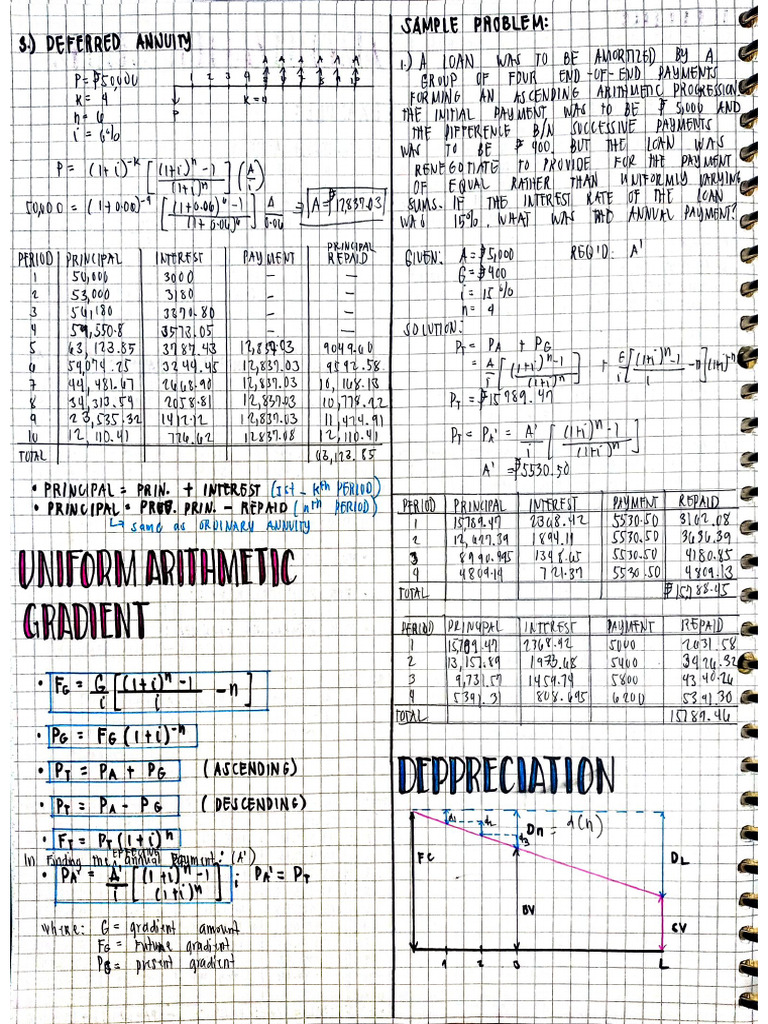 3.) DEFERRED ANNUITY
P = ₱50,000
K = 4
n = 6
i = 6%
1 2 3 4 5 6 7 8 9 10
A A A A A A
K = 4
P
P = (1+i)^-k [ (1+i)^n - 1 / (1+i)^n ] (A/i)
50,000 = (1+0.06)^-4 [ (1+0.06)^6 - 1 / (1+0.06)^6 ] A/0.06 ⇒ A = ₱12,837.03
PERIOD PRINCIPAL INTEREST PAYMENT PRINCIPAL REPAID
1 50,000 3000 — —
2 53,000 3180 — —
3 56,180 3370.80 — —
4 59,550.8 3573.05 — —
5 63,123.85 3787.43 12,837.03 9049.60
6 54,074.25 3244.45 12,837.03 9592.58
7 44,481.67 2668.90 12,837.03 10,168.13
8 34,313.54 2058.81 12,837.03 10,778.22
9 23,535.32 1412.12 12,837.03 11,424.91
10 12,110.41 726.62 12837.03 12,110.41
TOTAL 63,123.85
• PRINCIPAL = PRIN. + INTEREST (1st - Kth PERIOD)
• PRINCIPAL = PREV. PRIN. - REPAID (nth PERIOD)
↳ same as ORDINARY ANNUITY
UNIFORM ARITHMETIC
GRADIENT
• FG = G/i [ (1+i)^n - 1 / i - n ]
• PG = FG (1+i)^-n
• PT = PA + PG (ASCENDING)
• PT = PA - PG (DESCENDING)
• FT = PT (1+i)^n
In Finding the EFFECTIVE annual payment: (A')
• PA' = A'/i [ (1+i)^n - 1 / (1+i)^n ] ; PA' = PT
where: G = gradient amount
FG = Future gradient
PG = present gradient
SAMPLE PROBLEM:
1.) A LOAN WAS TO BE AMORTIZED BY A
GROUP OF FOUR END-OF-END PAYMENTS
FORMING AN ASCENDING ARITHMETIC PROGRESSION
THE INITIAL PAYMENT WAS TO BE ₱ 5,000 AND
THE DIFFERENCE B/N SUCCESSIVE PAYMENTS
WAS TO BE ₱ 400. BUT THE LOAN WAS
RENEGOTIATE TO PROVIDE FOR THE PAYMENT
OF EQUAL RATHER THAN UNIFORMLY VARYING
SUMS. IF THE INTEREST RATE OF THE LOAN
WAS 15%, WHAT WAS THE ANNUAL PAYMENT?
GIVEN: A = ₱5,000 REQ'D: A'
G = ₱400
i = 15%
n = 4
SOLUTION:
PT = PA + PG
= A/i [ (1+i)^n - 1 / (1+i)^n ] + G/i [ (1+i)^n - 1 / i - n ] (1+i)^-n
PT = ₱15789.47
PT = PA' = A'/i [ (1+i)^n - 1 / (1+i)^n ]
A' = ₱5530.50
PERIOD PRINCIPAL INTEREST PAYMENT REPAID
1 15789.47 2368.42 5530.50 3162.08
2 12,627.39 1894.11 5530.50 3636.39
3 8990.995 1348.65 5530.50 4180.85
4 4809.14 721.37 5530.50 4809.13
TOTAL ₱15788.45
PERIOD PRINCIPAL INTEREST PAYMENT REPAID
1 15,789.47 2368.42 5000 2631.58
2 13,157.89 1973.68 5400 3426.32
3 9,731.57 1459.74 5800 4340.26
4 5391.31 808.695 6200 5391.30
TOTAL 15789.46
DEPPRECIATION
d1 d2 d3 Dn = d(n)
FC
BV
DL
CV
1 2 3 L